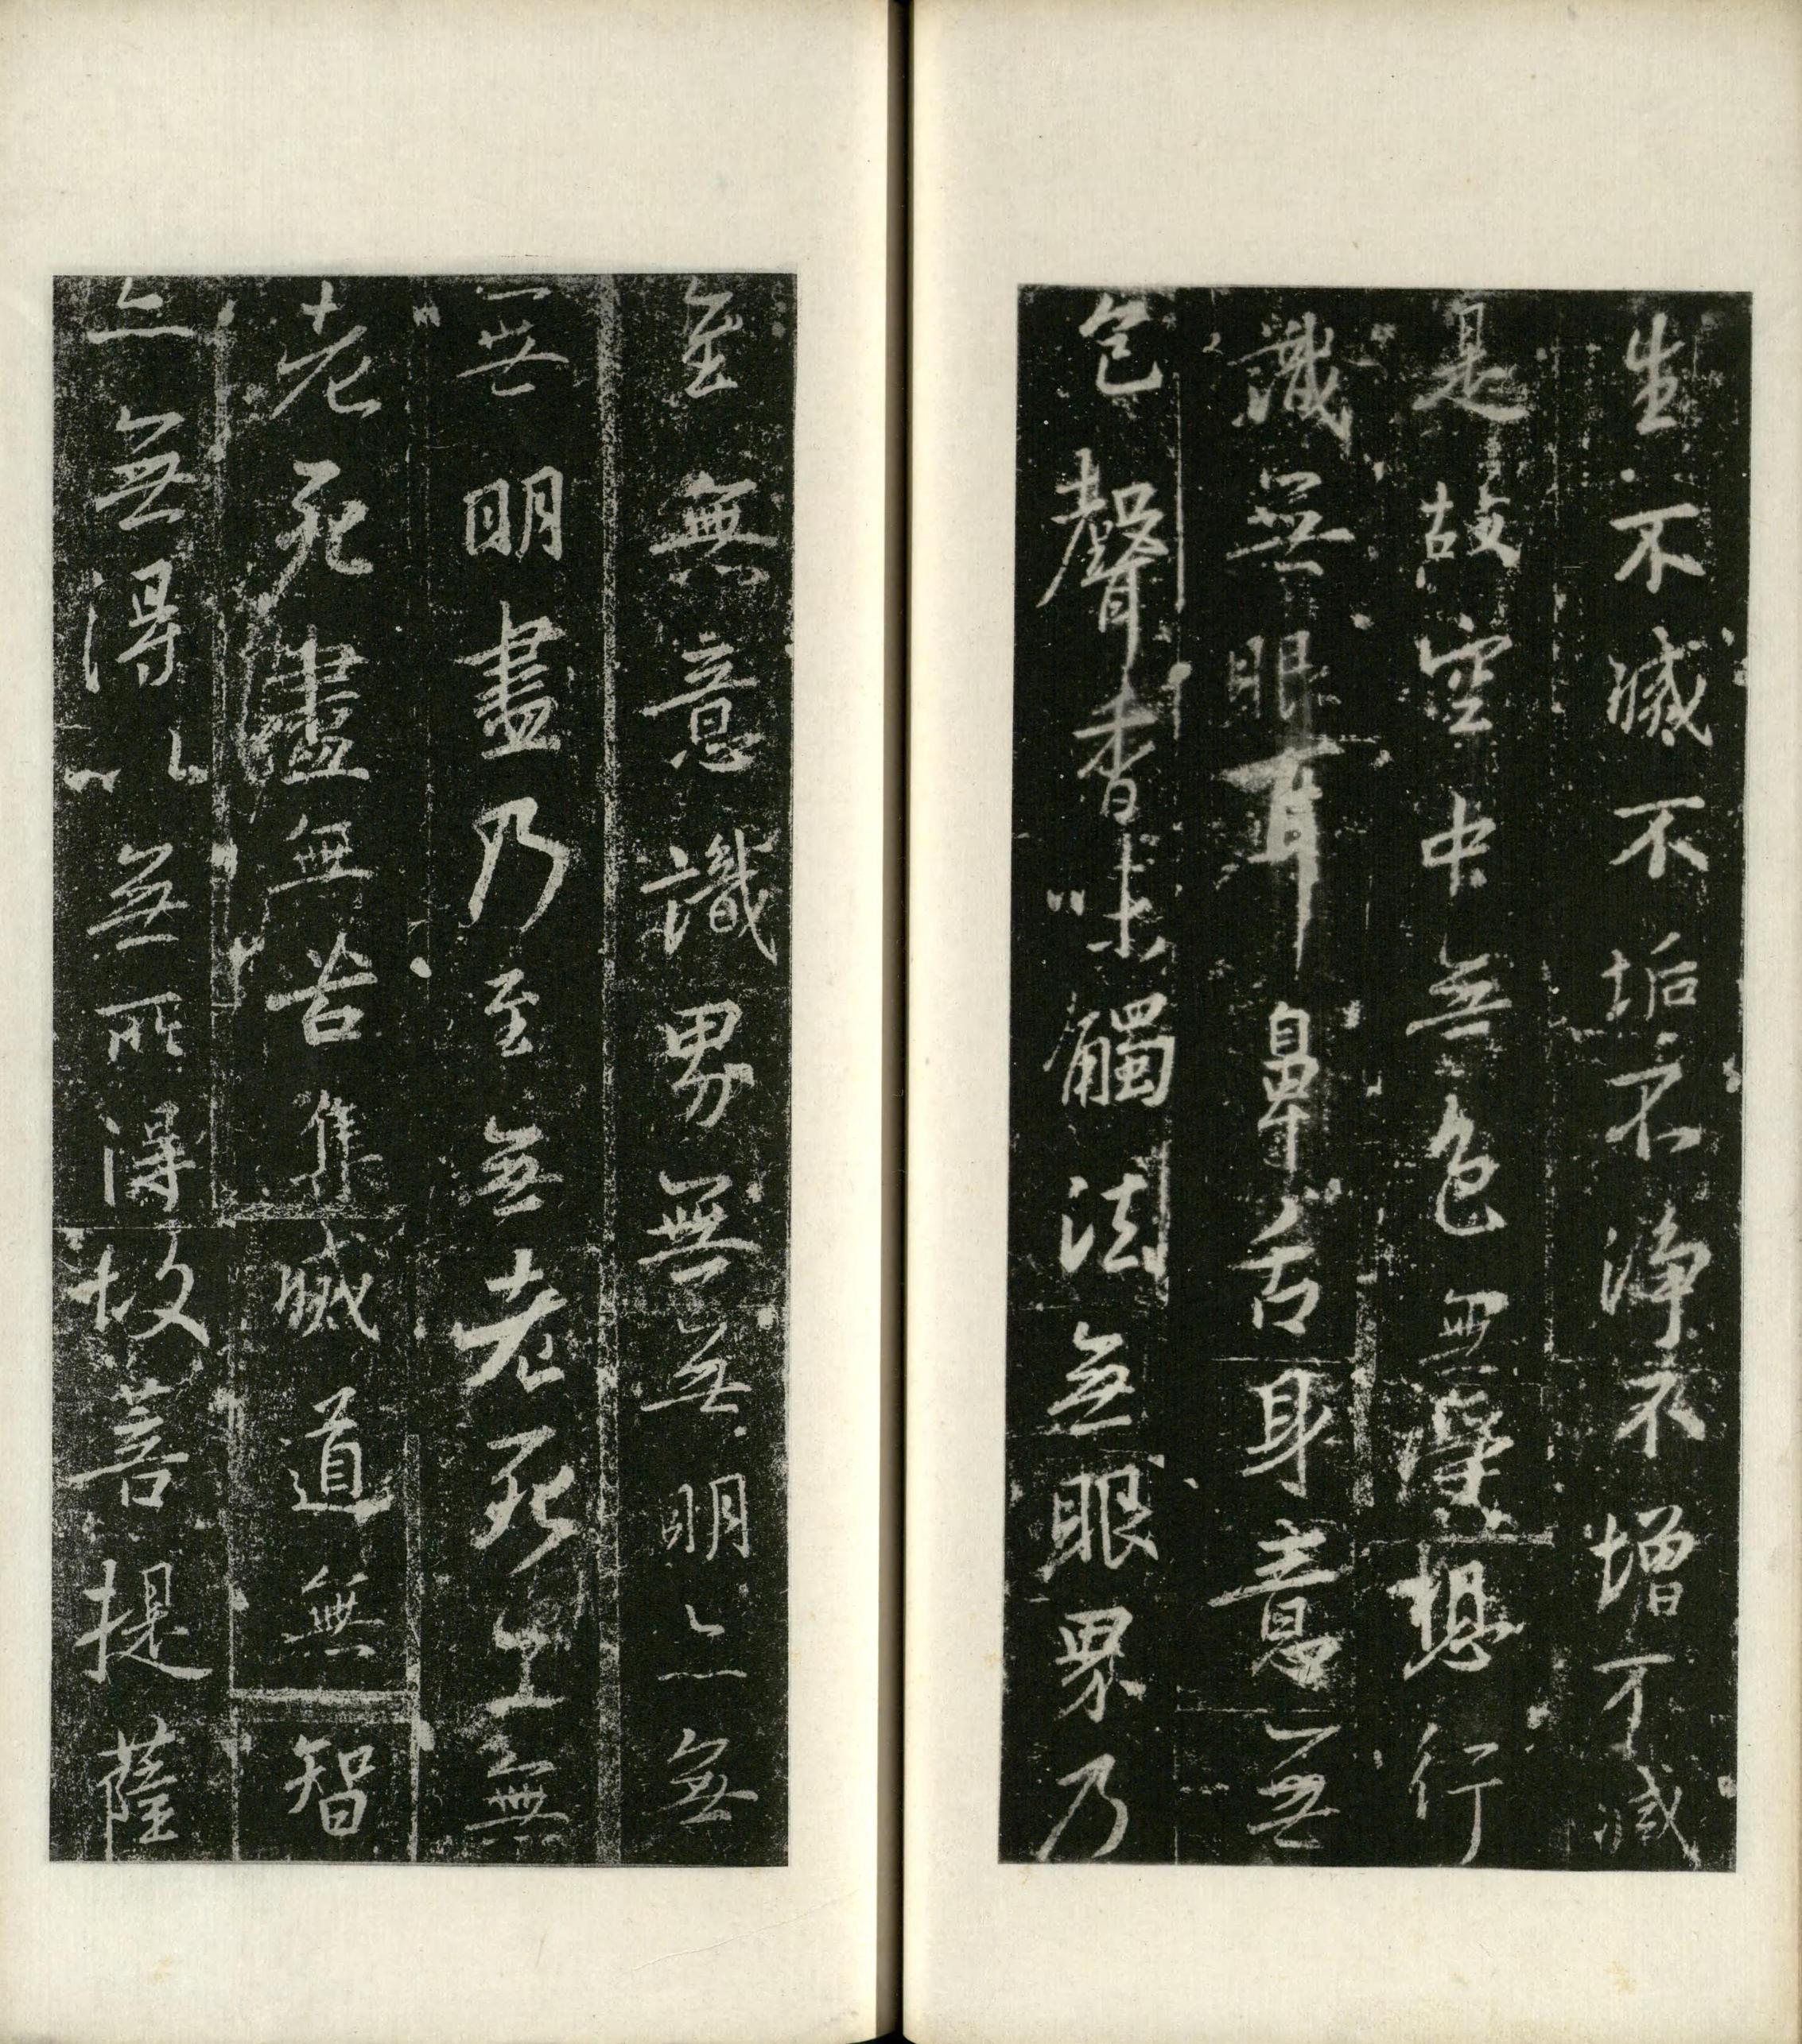 生不滅不垢不淨不增不減
是故空中無色無受想行
識無眼耳鼻舌身意無
色聲香味觸法無眼界乃
至無意識界無無明亦無
無明盡乃至無老死亦無
老死盡無苦集滅道無智
亦無得以無所得故菩提薩